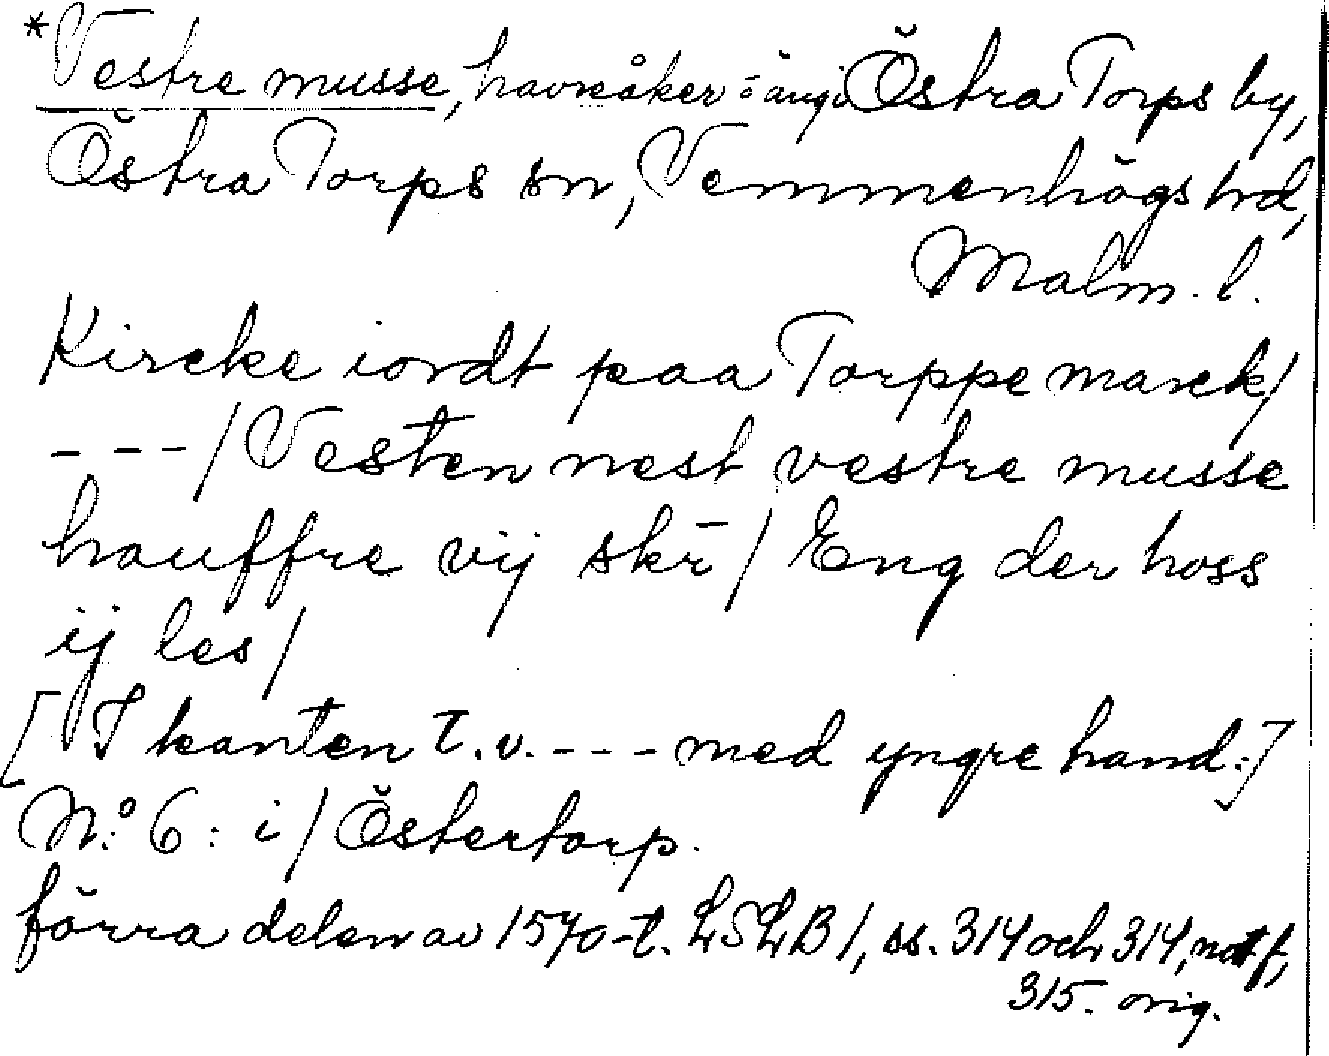 *Vestre musse, havreåker o. äng i Östra Torps by,
Östra Torps sn, Vemmenhögs hd,
Malm. l.
Kircke iordt paa Torppe marck/
- - - / Vesten nest vestre musse
hauffre vij skr̄ / Eng der hoss
ij les/
[I kanten t.v. - - - med yngre hand:]
N:o 6: i / Östertorp.
förra delen av 1570-t. LSLB 1, ss. 314 och 314, not f,
315. orig.